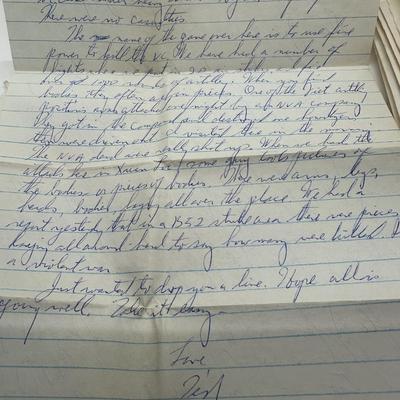 There were no casualties.
The name of the game over here is to use fire
power to kill the VC. We have had a number of
fights where we put in
bodies they are in pieces. One of the first
positions was attacked overnight by a NVA company
They got in the compound and destroyed one howitzer
then were driven out. I visited there in the morning.
The NVA dead were really shot up. When we had the
attacks here in Xuan Loc some guy took pictures of
the bodies or pieces of bodies. There were arms, legs,
heads, bodies laying all over the place. We had a
report yesterday that in a B52 strike area there were pieces
laying all around hard to say how many were killed.
a violent war.
Just wanted to drop you a line. I hope all is
going well. Take it easy.
Love
Ted